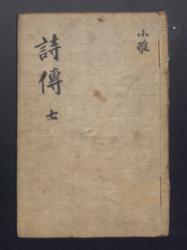 小雅
詩傳 七